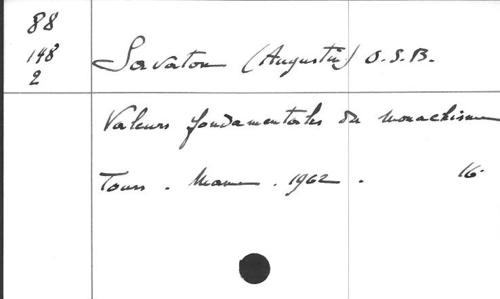 88
148
2
Savaton (Augustin) O.S.B.
Valeurs fondamentales du monachisme
Tours . Mame . 1962 . 16.